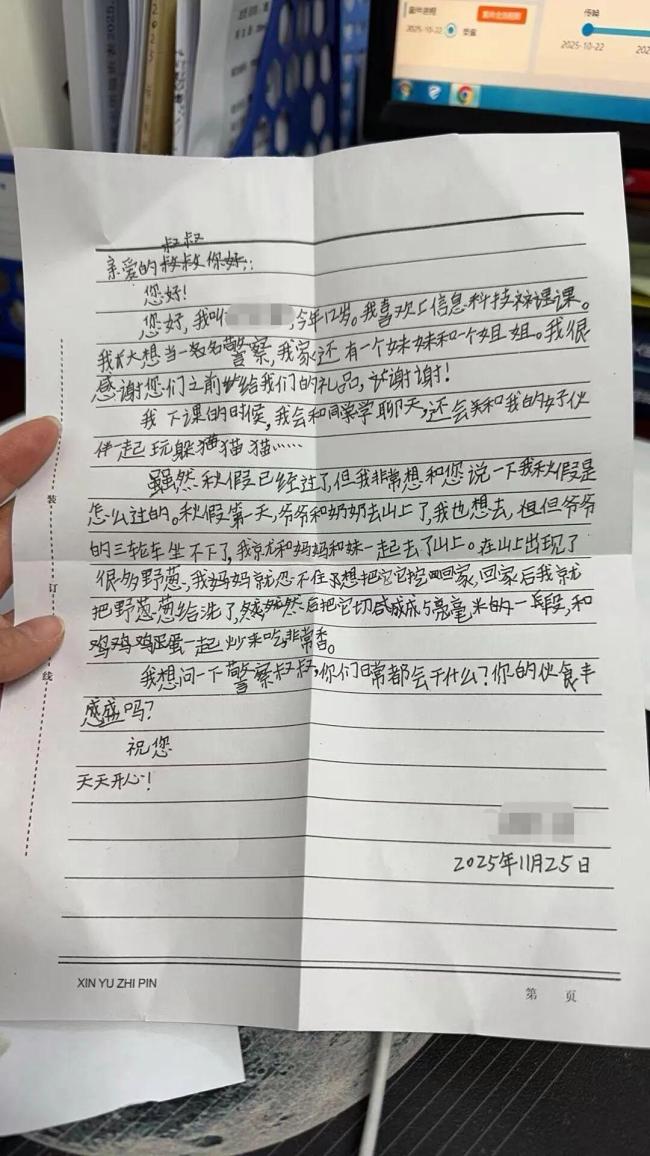 叔叔
亲爱的叔叔你好：
您好！
您好，我叫，今年12岁。我喜欢上信息科技课。
我长大想当一名警察，我家还有一个妹妹和一个姐姐。我很
感谢您们之前给我们的礼品，谢谢！
我下课的时候，我会和同学聊天，还会和我的好伙
伴一起玩躲猫猫猫……
虽然秋假已经过了，但我非常想和您说一下我秋假是
怎么过的。秋假第一天，爷爷和奶奶去山上了，我也想去，但爷爷
的三轮车坐不下了，我就和妈妈和妹一起去了山上。在山上出现了
很多野葱，我妈妈就忍不住想把它挖回家，回家后我就
把野葱葱给洗了，然后把它切成5毫米的一段，和
鸡鸡鸡蛋一起炒来吃，非常香。
我想问一下警察叔叔，你们日常都会干什么？你的伙食丰
盛吗？
祝您
天天开心！
2025年11月25日
装
订
线
XIN YU ZHI PIN
第 页
2025-10-22
传输
2025-10-22